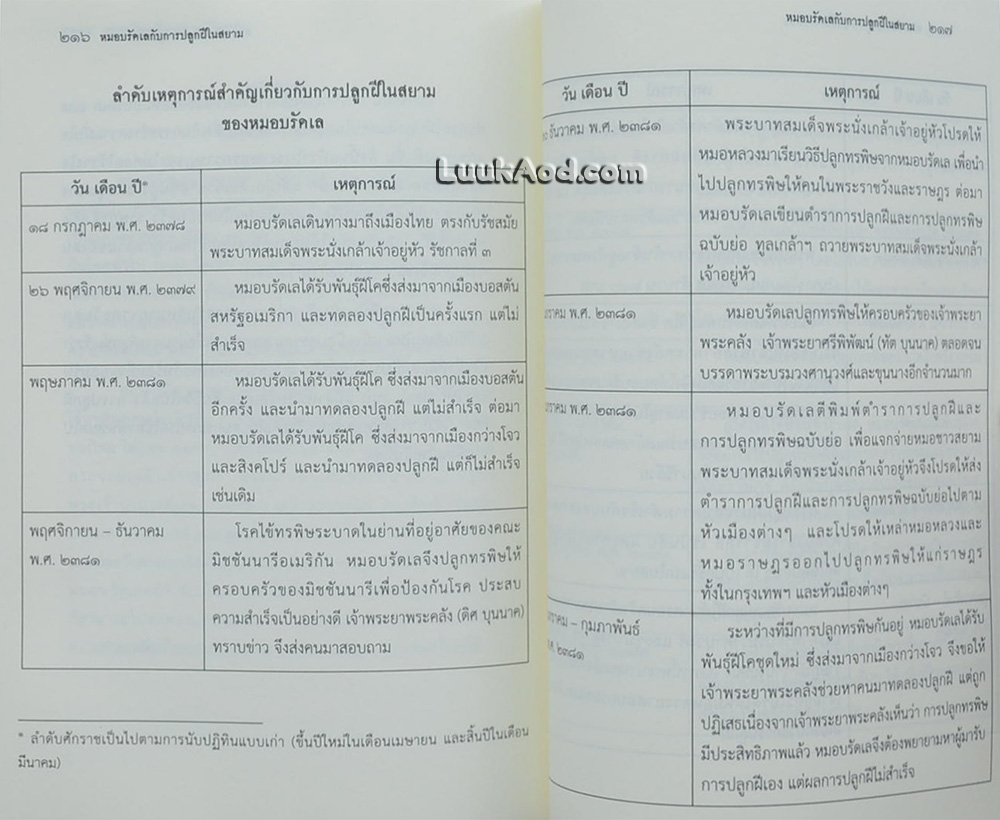 ๒๑๖ หมอบรัดเลกับการปลูกฝีในสยาม
ลำดับเหตุการณ์สำคัญเกี่ยวกับการปลูกฝีในสยาม
ของหมอบรัดเล
วัน เดือน ปี*
เหตุการณ์
๑๘ กรกฎาคม พ.ศ. ๒๓๗๘
หมอบรัดเลเดินทางมาถึงเมืองไทย ตรงกับรัชสมัย
พระบาทสมเด็จพระนั่งเกล้าเจ้าอยู่หัว รัชกาลที่ ๓
๒๖ พฤศจิกายน พ.ศ. ๒๓๗๙
หมอบรัดเลได้รับพันธุ์ฝีซึ่งส่งมาจากเมืองบอสตัน
สหรัฐอเมริกา และทดลองปลูกฝีเป็นครั้งแรก แต่ไม่
สำเร็จ
พฤษภาคม พ.ศ. ๒๓๘๑
หมอบรัดเลได้รับพันธุ์ฝีโค ซึ่งส่งมาจากเมืองบอสตัน
อีกครั้ง และนำมาทดลองปลูกฝี แต่ไม่สำเร็จ ต่อมา
หมอบรัดเลได้รับพันธุ์ฝีโค ซึ่งส่งมาจากเมืองกว่างโจว
และสิงคโปร์ และนำมาทดลองปลูกฝี แต่ก็ไม่สำเร็จ
เช่นเดิม
พฤศจิกายน – ธันวาคม
พ.ศ. ๒๓๘๑
โรคไข้ทรพิษระบาดในย่านที่อยู่อาศัยของคณะ
มิชชันนารีอเมริกัน หมอบรัดเลจึงปลูกทรพิษให้
ครอบครัวของมิชชันนารีเพื่อป้องกันโรค ประสบ
ความสำเร็จเป็นอย่างดี เจ้าพระยาพระคลัง (ดิศ บุนนาค)
ทราบข่าว จึงส่งคนมาสอบถาม
* ลำดับศักราชเป็นไปตามการนับปฏิทินแบบเก่า (ขึ้นปีใหม่ในเดือนเมษายน และสิ้นปีในเดือน
มีนาคม)
LuukAod.com
หมอบรัดเลกับการปลูกฝีในสยาม ๒๑๗
วัน เดือน ปี
เหตุการณ์
ธันวาคม พ.ศ. ๒๓๘๑
พระบาทสมเด็จพระนั่งเกล้าเจ้าอยู่หัวโปรดให้
หมอหลวงมาเรียนวิธีปลูกทรพิษจากหมอบรัดเล เพื่อนำ
ไปปลูกทรพิษให้คนในพระราชวังและราษฎร ต่อมา
หมอบรัดเลเขียนตำราการปลูกฝีและการปลูกทรพิษ
ฉบับย่อ ทูลเกล้าฯ ถวายพระบาทสมเด็จพระนั่งเกล้า
เจ้าอยู่หัว
พ.ศ. ๒๓๘๑
หมอบรัดเลปลูกทรพิษให้ครอบครัวของเจ้าพระยา
พระคลัง เจ้าพระยาศรีพิพัฒน์ (ทัต บุนนาค) ตลอดจน
บรรดาพระบรมวงศานุวงศ์และขุนนางอีกจำนวนมาก
พ.ศ. ๒๓๘๑
หมอบรัดเลตีพิมพ์ตำราการปลูกฝีและ
การปลูกทรพิษฉบับย่อ เพื่อแจกจ่ายหมอชาวสยาม
พระบาทสมเด็จพระนั่งเกล้าเจ้าอยู่หัวจึงโปรดให้ส่ง
ตำราการปลูกฝีและการปลูกทรพิษฉบับย่อไปตาม
หัวเมืองต่างๆ และโปรดให้เหล่าหมอหลวงและ
หมอราษฎรออกไปปลูกทรพิษให้แก่ราษฎร
ทั้งในกรุงเทพฯ และหัวเมืองต่างๆ
– กุมภาพันธ์
๒๓๘๑
ระหว่างที่มีการปลูกทรพิษกันอยู่ หมอบรัดเลได้รับ
พันธุ์ฝีโคชุดใหม่ ซึ่งส่งมาจากเมืองกว่างโจว จึงขอให้
เจ้าพระยาพระคลังช่วยหาคนมาทดลองปลูกฝี แต่ถูก
ปฏิเสธเนื่องจากเจ้าพระยาพระคลังเห็นว่า การปลูกทรพิษ
มีประสิทธิภาพแล้ว หมอบรัดเลจึงต้องพยายามหาผู้มารับ
การปลูกฝีเอง แต่ผลการปลูกฝีไม่สำเร็จ